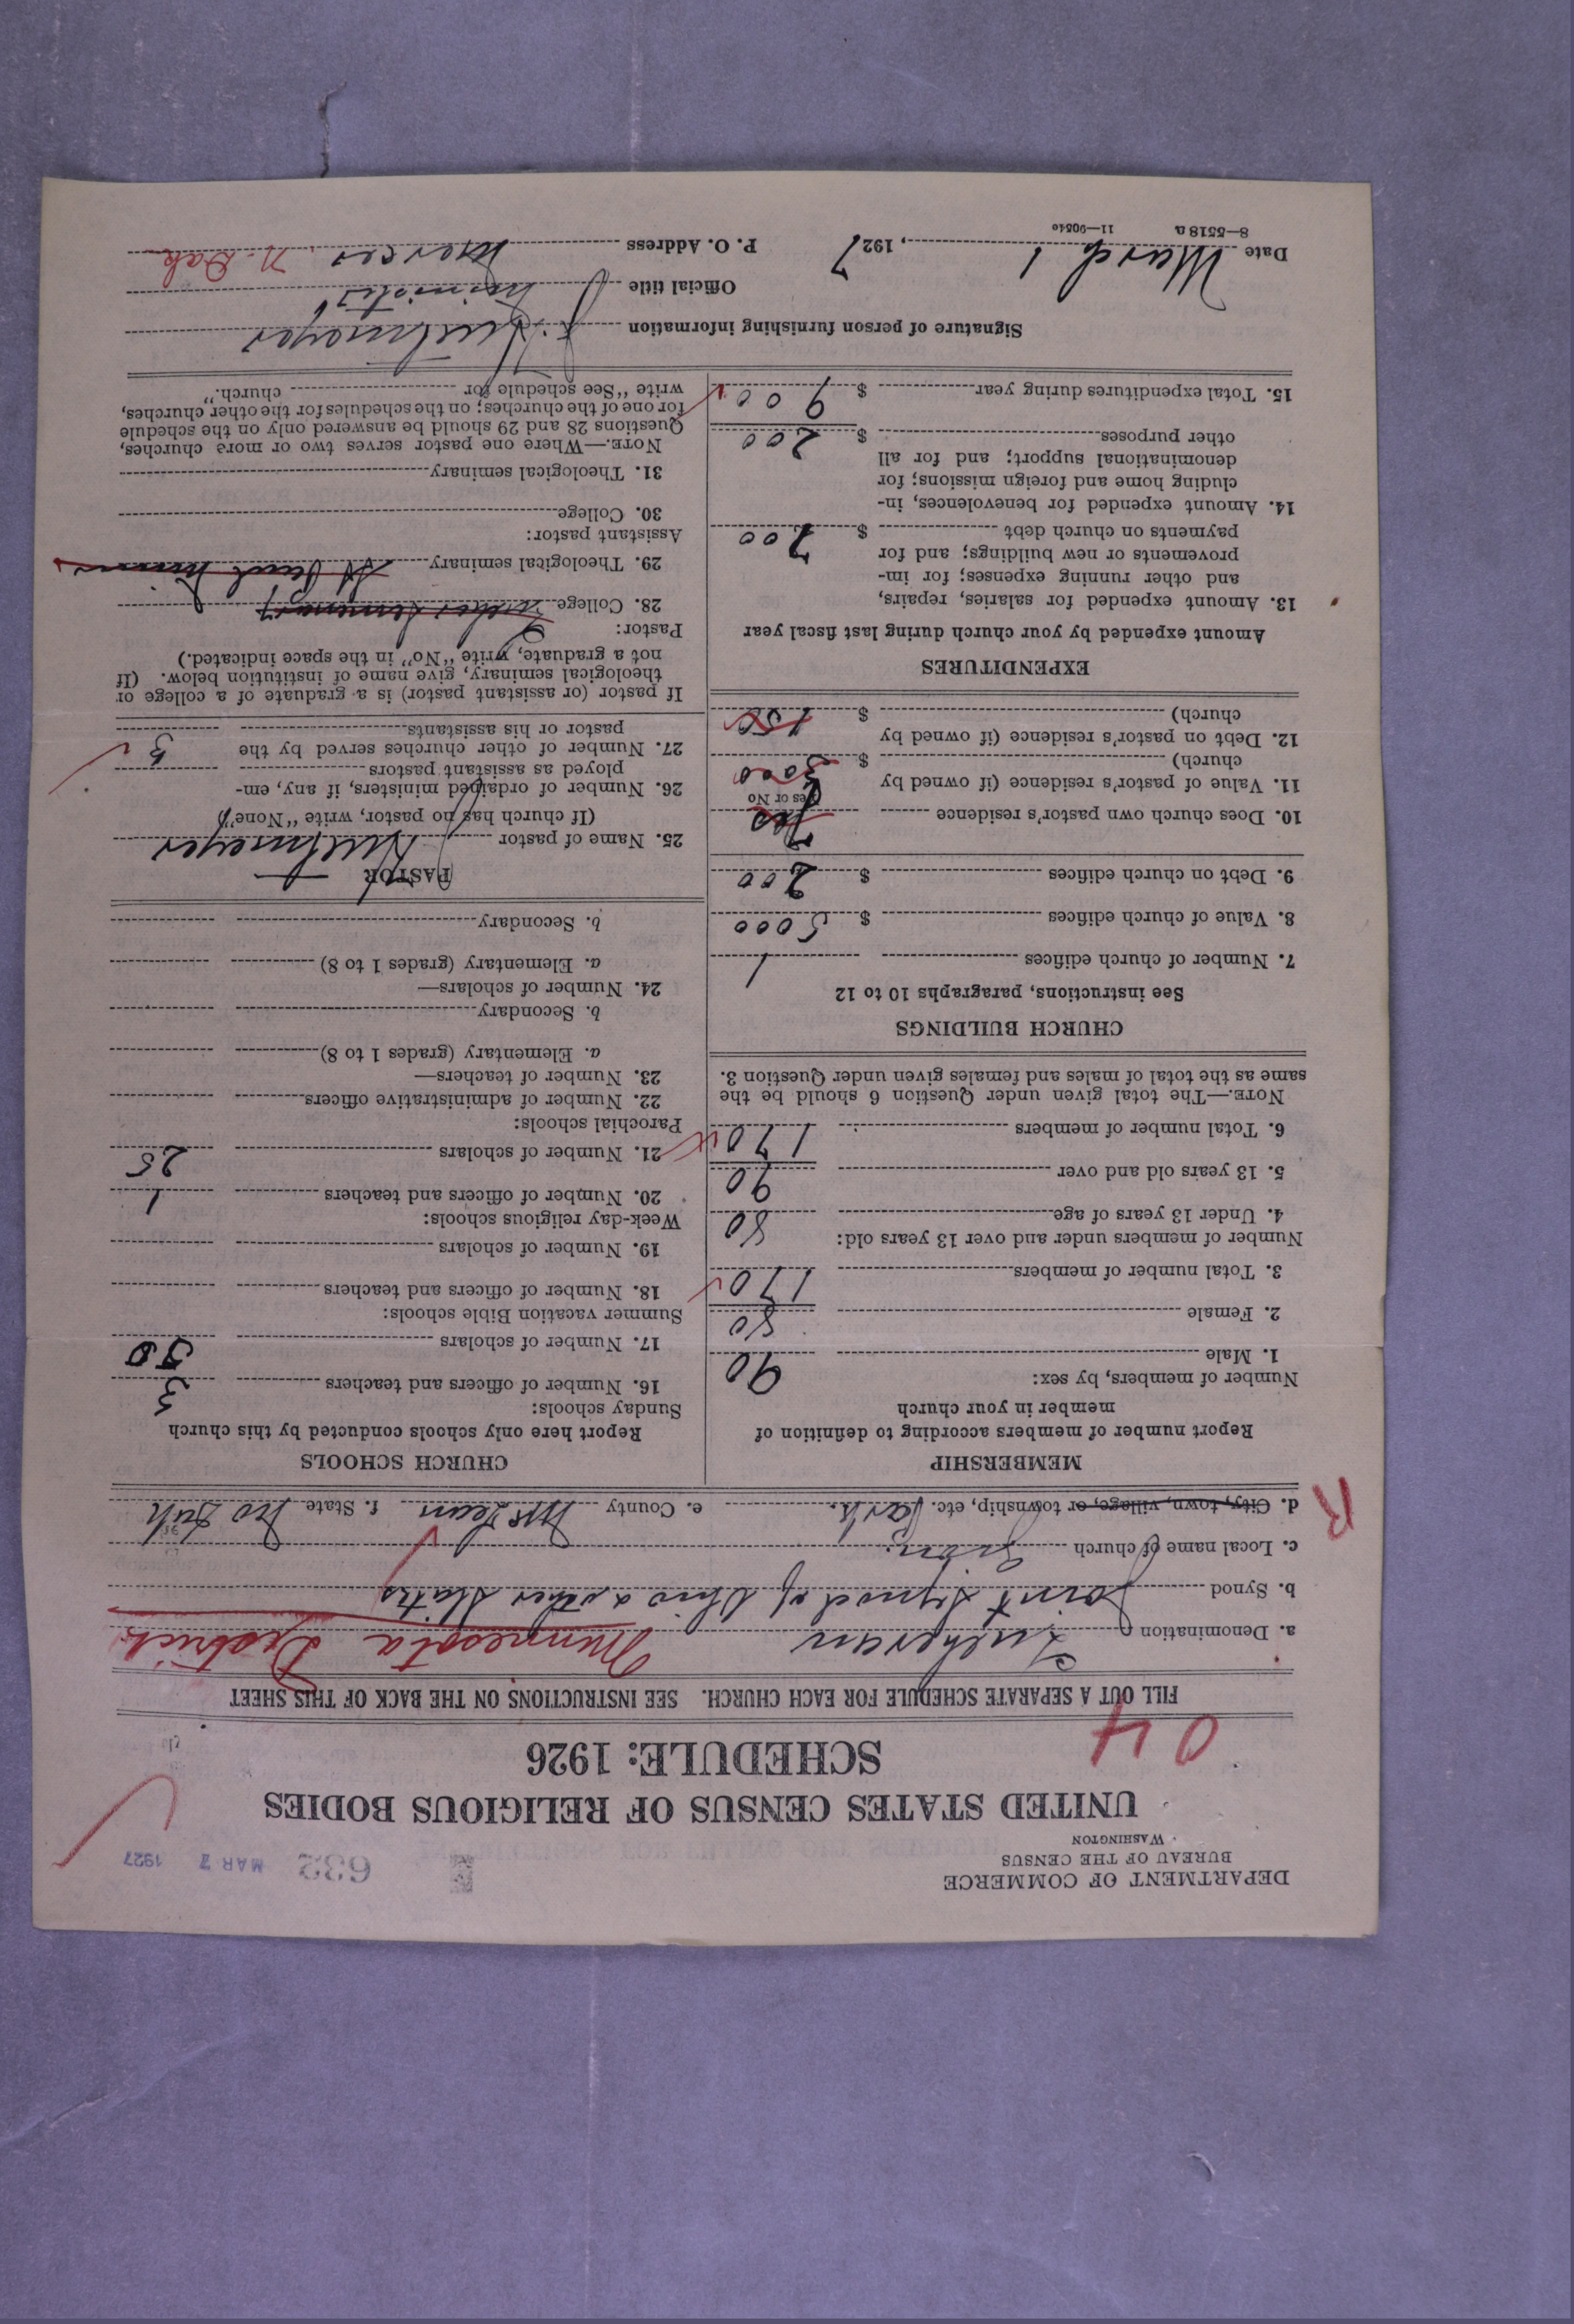 DEPARTMENT OF COMMERCE
BUREAU OF THE CENSUS
WASHINGTON
632 MAR 7 1927
UNITED STATES CENSUS OF RELIGIOUS BODIES
SCHEDULE: 1926
04
FILL OUT A SEPARATE SCHEDULE FOR EACH CHURCH. SEE INSTRUCTIONS ON THE BACK OF THIS SHEET
a. Denomination Lutheran Minnesota District
b. Synod Joint Synod of Ohio & other States
c. Local name of church Zion.
d. City, town, village, or township, etc. e. County McLean f. State No Dak
R
MEMBERSHIP
Report number of members according to definition of
member in your church
Number of members, by sex:
1. Male 90
2. Female 80
3. Total number of members 170
Number of members under and over 13 years old:
4. Under 13 years of age 80
5. 13 years old and over 90
6. Total number of members 170
NOTE.—The total given under Question 6 should be the
same as the total of males and females given under Question 3.
CHURCH BUILDINGS
See instructions, paragraphs 10 to 12
7. Number of church edifices 1
8. Value of church edifices $ 5000
9. Debt on church edifices $ 200
10. Does church own pastor's residence Yes
Yes or No
11. Value of pastor's residence (if owned by
church) $ 3000
12. Debt on pastor's residence (if owned by
church) $ 150
EXPENDITURES
Amount expended by your church during last fiscal year
13. Amount expended for salaries, repairs,
and other running expenses; for im-
provements or new buildings; and for
payments on church debt $ 700
14. Amount expended for benevolences, in-
cluding home and foreign missions; for
denominational support; and for all
other purposes $ 200
15. Total expenditures during year $ 900
CHURCH SCHOOLS
Report here only schools conducted by this church
Sunday schools:
16. Number of officers and teachers 3
17. Number of scholars 50
Summer vacation Bible schools:
18. Number of officers and teachers
19. Number of scholars
Week-day religious schools:
20. Number of officers and teachers 1
21. Number of scholars 25
Parochial schools:
22. Number of administrative officers
23. Number of teachers—
a. Elementary (grades 1 to 8)
b. Secondary
24. Number of scholars—
a. Elementary (grades 1 to 8)
b. Secondary
PASTOR
25. Name of pastor
(If church has no pastor, write "None")
26. Number of ordained ministers, if any, em-
ployed as assistant pastors
27. Number of other churches served by the
pastor or his assistants 3
If pastor (or assistant pastor) is a graduate of a college or
theological seminary, give name of institution below. (If
not a graduate, write "No" in the space indicated.)
Pastor:
28. College Luther Seminary
29. Theological seminary St Paul Minn
Assistant pastor:
30. College
31. Theological seminary
NOTE.—Where one pastor serves two or more churches,
Questions 28 and 29 should be answered only on the schedule
for one of the churches; on the schedules for the other churches,
write "See schedule for church."
Signature of person furnishing information
Official title Minister
Date March 1, 1927 P. O. Address Mercer N. Dak
8—5518 a 11—90540